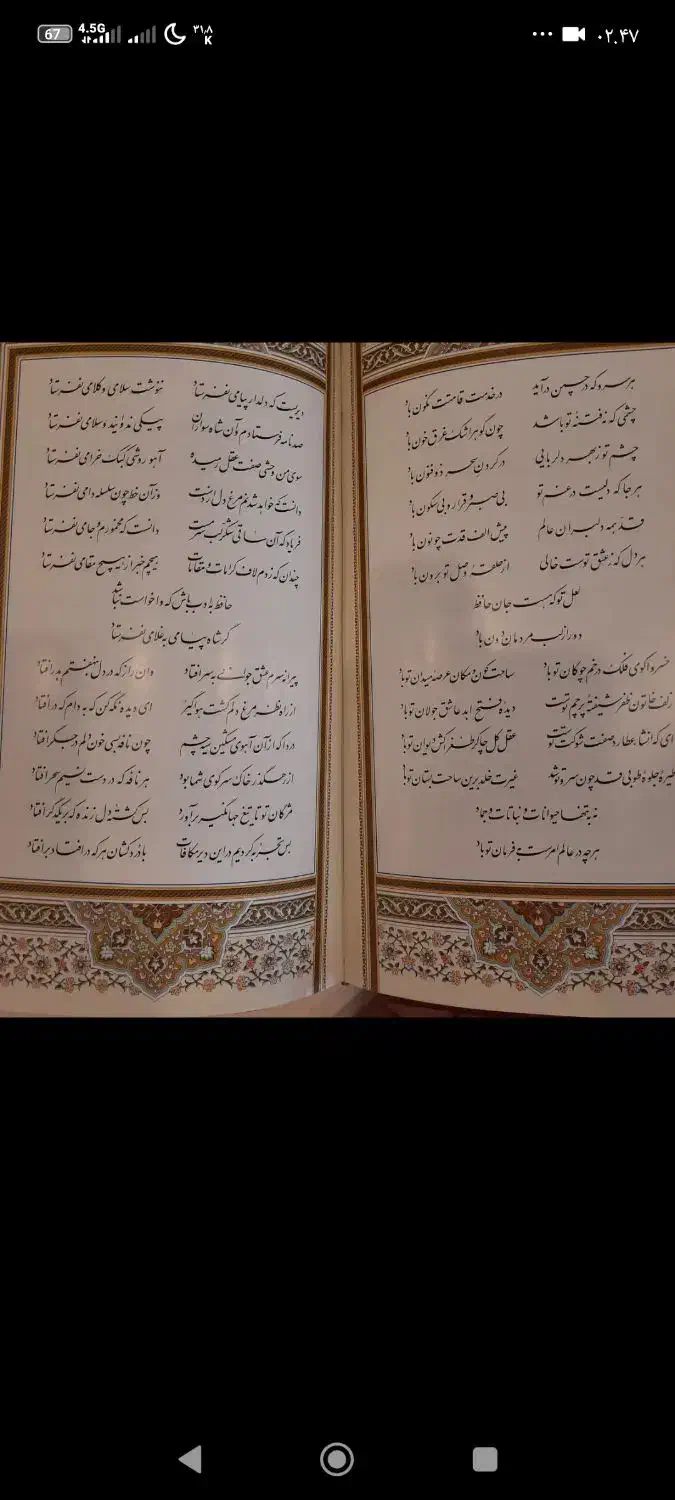 67 4.5G ۳۱٫۸ K ۰۲:۴۷
هر سرو که در چمن درآید در خدمت قامتت نگون باد
چشمی که نه فتنهٔ تو باشد چون گوهر اشک غرق خون باد
چشم تو ز بهر دلربایی در کردن سحر ذوفنون باد
هر جا که دلیست در غم تو بی صبر و قرار و بی سکون باد
قد همه دلبران عالم پیش الف قدت چو نون باد
هر دل که ز عشق توست خالی از حلقهٔ وصل تو برون باد
لعل تو که هست جان حافظ
دور از لب مردمان دون باد
خسروا گوی فلک در خم چوگان تو باد ساحت کون و مکان عرصهٔ میدان تو باد
زلف خاتون ظفر شیفتهٔ پرچم توست دیدهٔ فتح ابد عاشق جولان تو باد
ای که انشاء عطارد صفت شوکت توست عقل کل چاکر طغراکش دیوان تو باد
طیرهٔ جلوهٔ طوبی قد چون سرو تو شد غیرت خلد برین ساحت بستان تو باد
نه به تنها حیوانات و نباتات و جماد
هر چه در عالم امرست به فرمان تو باد
دیریست که دلدار پیامی نفرستاد ننوشت سلامی و کلامی نفرستاد
صد نامه فرستادم و آن شاه سواران پیکی ندوانید و سلامی نفرستاد
سوی من وحشی صفت عقل رمیده آهو روشی کبک خرامی نفرستاد
دانست که خواهد شدنم مرغ دل از دست وز آن خط چون سلسله دامی نفرستاد
فریاد که آن ساقی شکر لب سرمست دانست که مخمورم و جامی نفرستاد
چندان که زدم لاف کرامات و مقامات هیچم خبر از هیچ مقامی نفرستاد
حافظ به ادب باش که واخواست نباشد
گر شاه پیامی به غلامی نفرستاد
پیرانه سرم عشق جوانی به سر افتاد وان راز که در دل بنهفتم بدر افتاد
از راه نظر مرغ دلم گشت هواگیر ای دیده نگه کن که به دام که درافتاد
دردا که از آن آهوی مشکین سیه چشم چون نافه بسی خون دلم در جگر افتاد
از رهگذر خاک سر کوی شما بود هر نافه که در دست نسیم سحر افتاد
مژگان تو تا تیغ جهانگیر برآورد بس کشتهٔ دل زنده که بر یکدگر افتاد
بس تجربه کردیم در این دیر مکافات با دردکشان هر که درافتاد برافتاد